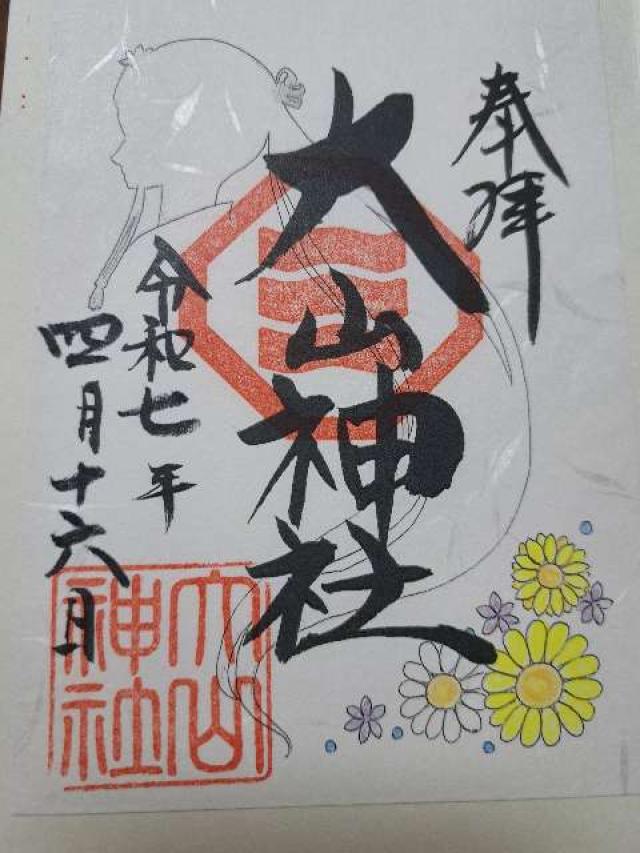 奉拝
大山神社
令和七年
四月十六日
大山
神社